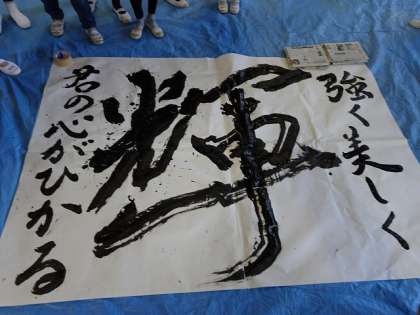 強く美しく
輝
君の心がひかる